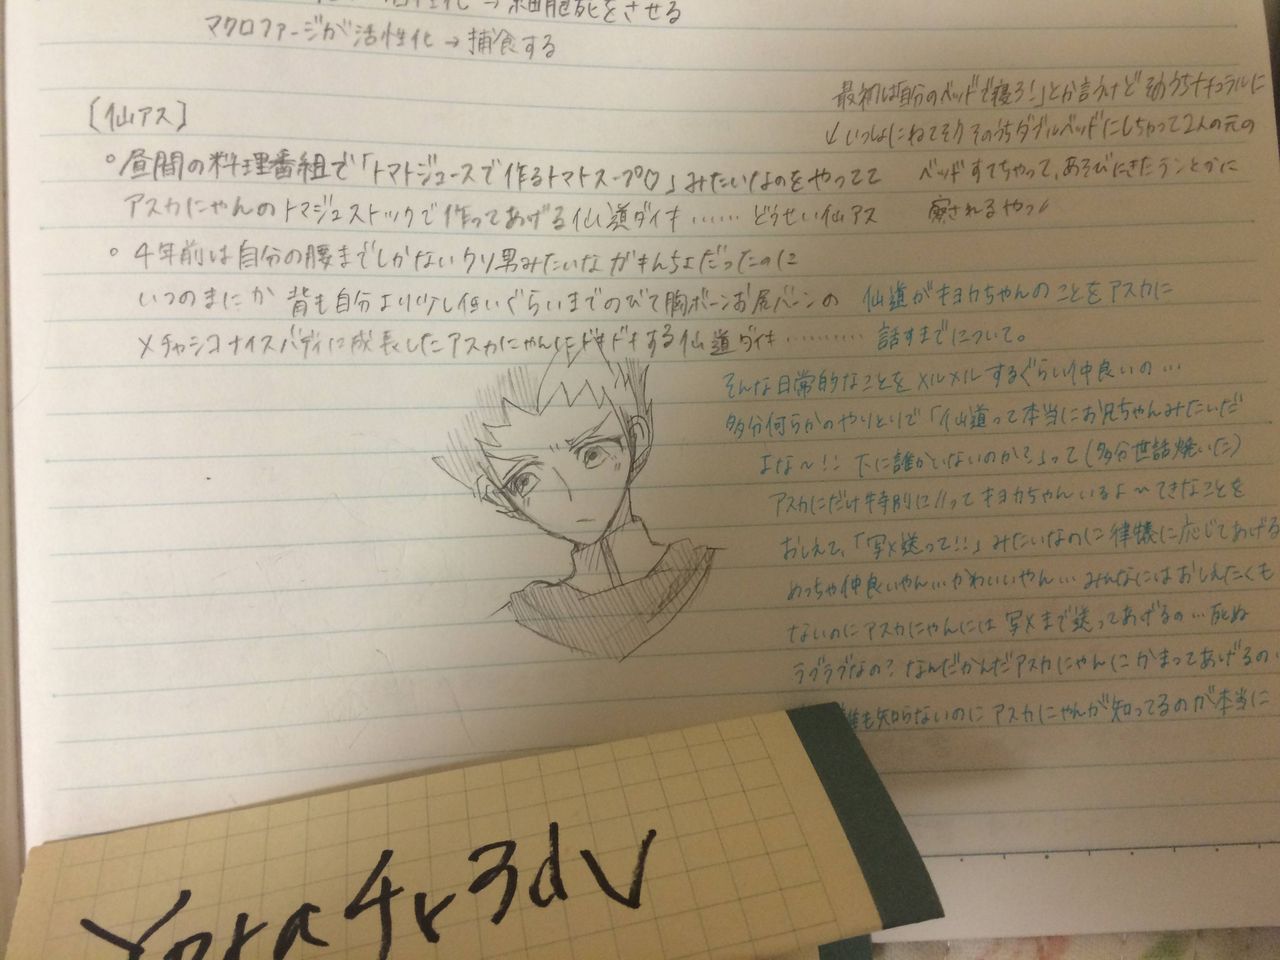 細胞死をさせる
マクロファージが活性化→捕食する
[仙アス]
。昼間の料理番組で「トマトジュースで作るトマトスープ♡」みたいなのをやってて
アスカにゃんのトマジュストックで作ってあげる仙道ダイキ……どうせい仙アス
。4年前は自分の腰までしかないクソ男みたいながきんちょだったのに
いつのまにか背も自分より少し低いぐらいまでのびて胸ボーンお尻バーンの
メチャシコナイスバディに成長したアスカにゃんにドギドギする仙道ダイキ…………
最初は「自分のベッドで寝ろ!」とか言うけどそのうちナチュラルに
↓いっしょにねてそりそのうちダブルベッドにしちゃって2人の元の
ベッドすてちゃって、あそびにきたランとかに
察されるやつ
仙道がキヨカちゃんのことをアスカに
話すまでについて。
そんな日常的なことをメルメルするぐらい仲良いの…
多分何らかのやりとりで「仙道って本当にお兄ちゃんみたいだ
よな〜!! 下に誰かいないのか?」って(多分世話焼いた)
アスカにだけ特別に//ってキヨカちゃんいるよ〜てきなことを
おしえて、「写メ送って!!」みたいなのに律儀に応じてあげる
めっちゃ仲良いやん…かわいいやん…みんなにはおしえたくも
ないのにアスカにゃんには写メまで送ってあげるの…死ぬ
ラブラブなの?なんだかんだアスカにゃんにかまってあげるの
誰も知らないのにアスカにゃんが知ってるのが本当に
Yora4r3dV